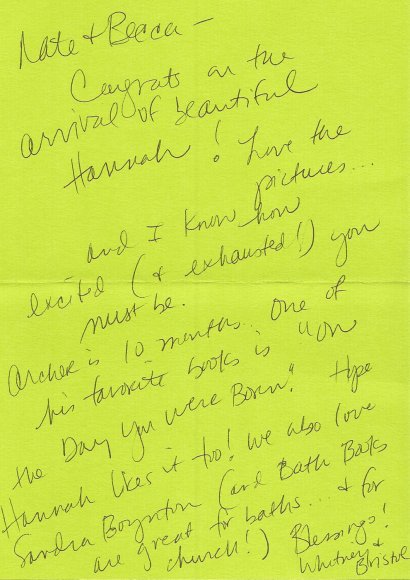 Nate & Becca —
Congrats on the
arrival of beautiful
Hannah! Love the
pictures...
and I know how
excited (& exhausted!) you
must be.
Archer is 10 months. One of
his favorite books is "On
the Day You Were Born." Hope
Hannah likes it too! We also love
Sandra Boynton (and Bath Books
are great for baths... & for
church!) Blessings!
Whitney &
Bristol